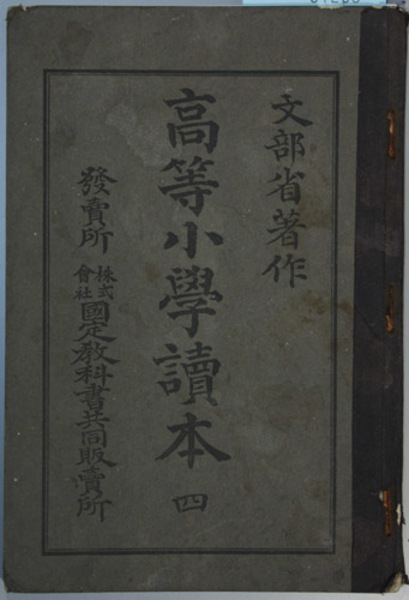 文部省著作
高等小學讀本 四
發賣所 株式會社 國定教科書共同販賣所